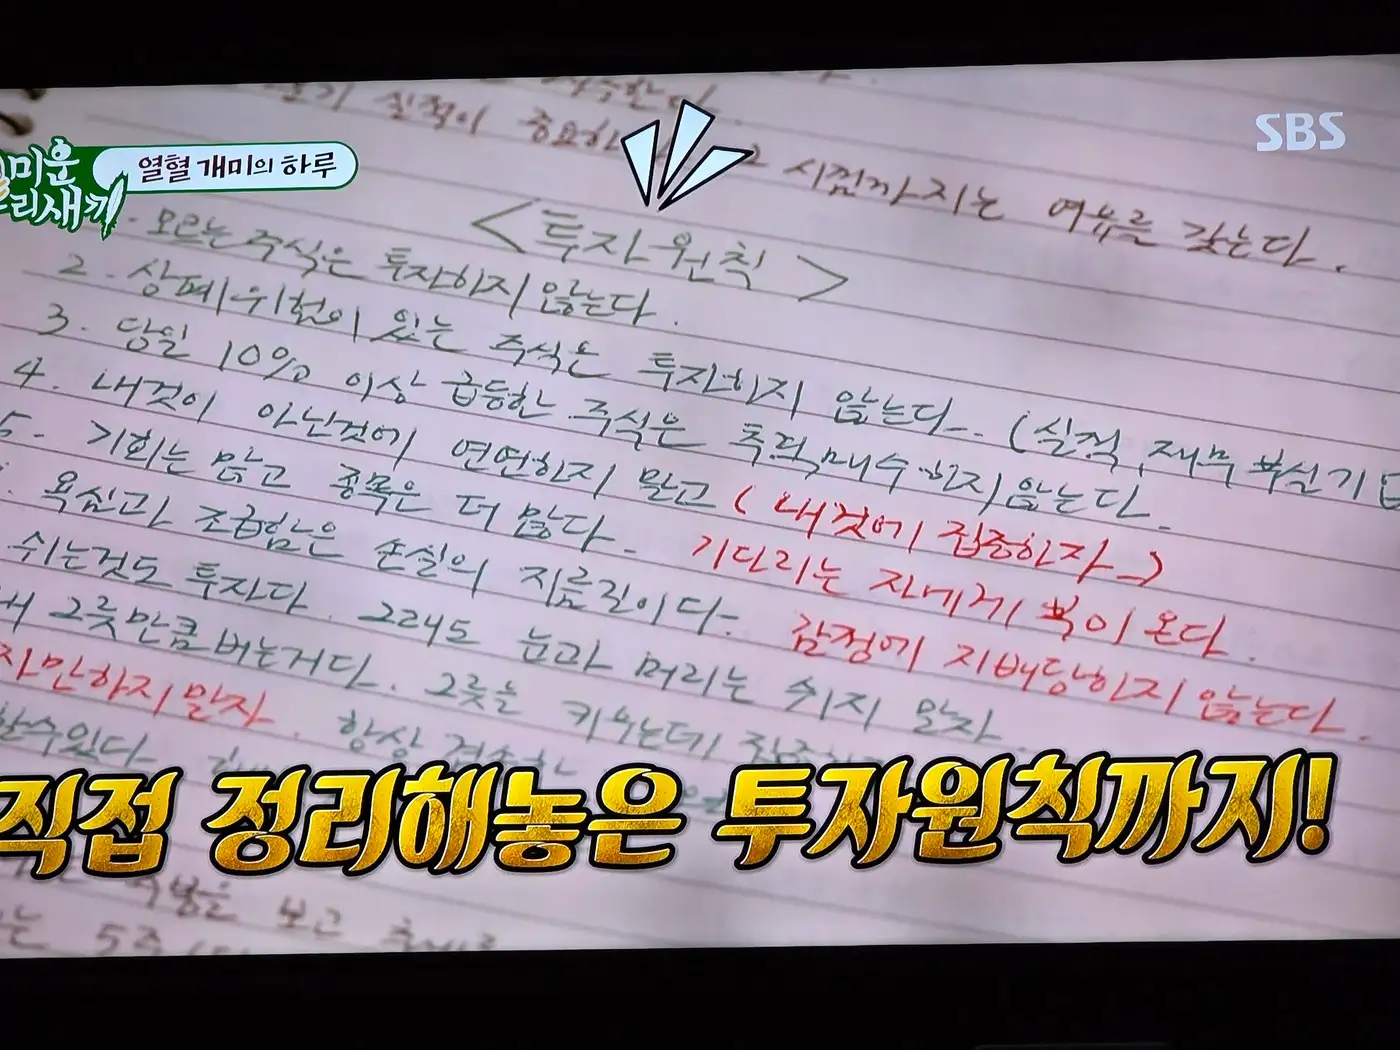 SBS
미운
리새끼
열혈 개미의 하루
실적이 중요하
시점까지는 여유를 갖는다.
<투자원칙>
. 모르는 주식은 투자하지 않는다.
2. 상폐위험이 있는 주식은 투자하지 않는다. (실적, 재무 부실기업
3. 당일 10% 이상 급등한 주식은 추격매수하지 않는다.
4. 내것이 아닌것에 연연하지 말고 (내것에 집중하자)
5. 기회는 많고 종목은 더 많다. 기다리는 자에게 복이 온다.
. 욕심과 조급함은 손실의 지름길이다. 감정에 지배당하지 않는다.
쉬는것도 투자다. 그래도 눈과 머리는 쉬지 말자.
그릇만큼 버는거다. 그릇은 키우는데
자만하지 말자. 항상 겸손한
할수있다
직접 정리해놓은 투자원칙까지!
보고
는 5주